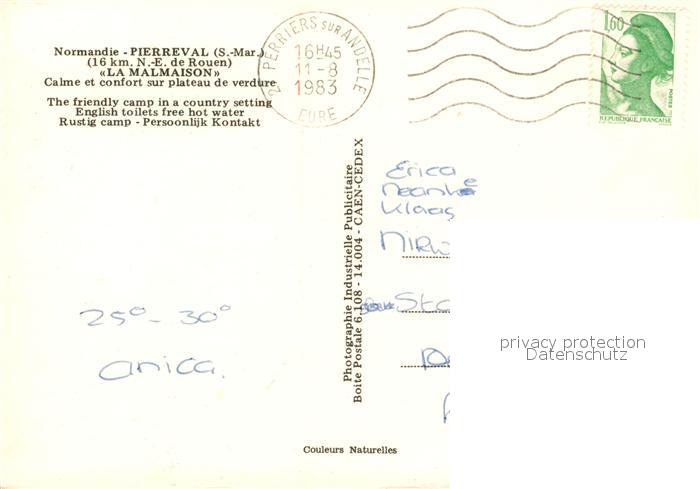 Normandie - PIERREVAL (S.-Mar.)
(16 km. N.-E. de Rouen)
«LA MALMAISON»
Calme et confort sur plateau de verdure
The friendly camp in a country setting
English toilets free hot water
Rustig camp - Persoonlijk Kontakt
PERRIERS SUR ANDELLE
16H45
11-8
1983
EURE
1,60
POSTES
REPUBLIQUE FRANÇAISE
Photographie Industrielle Publicitaire
Boite Postale 6.108 - 14.004 - CAEN-CEDEX
Erica
Klaas
25° - 30°
anica.
privacy protection
Datenschutz
Couleurs Naturelles